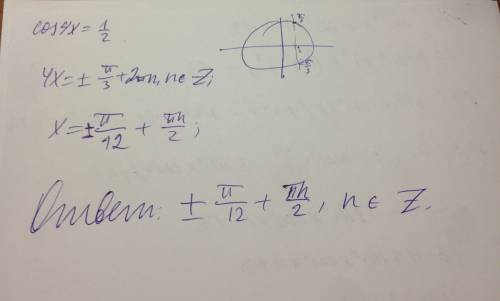 cos4x = 1/2
π/3
4x = ± π/3 + 2πn, n ∈ Z;
π/3
x = ± π/12 + πn/2;
Ответ: ± π/12 + πn/2, n ∈ Z.